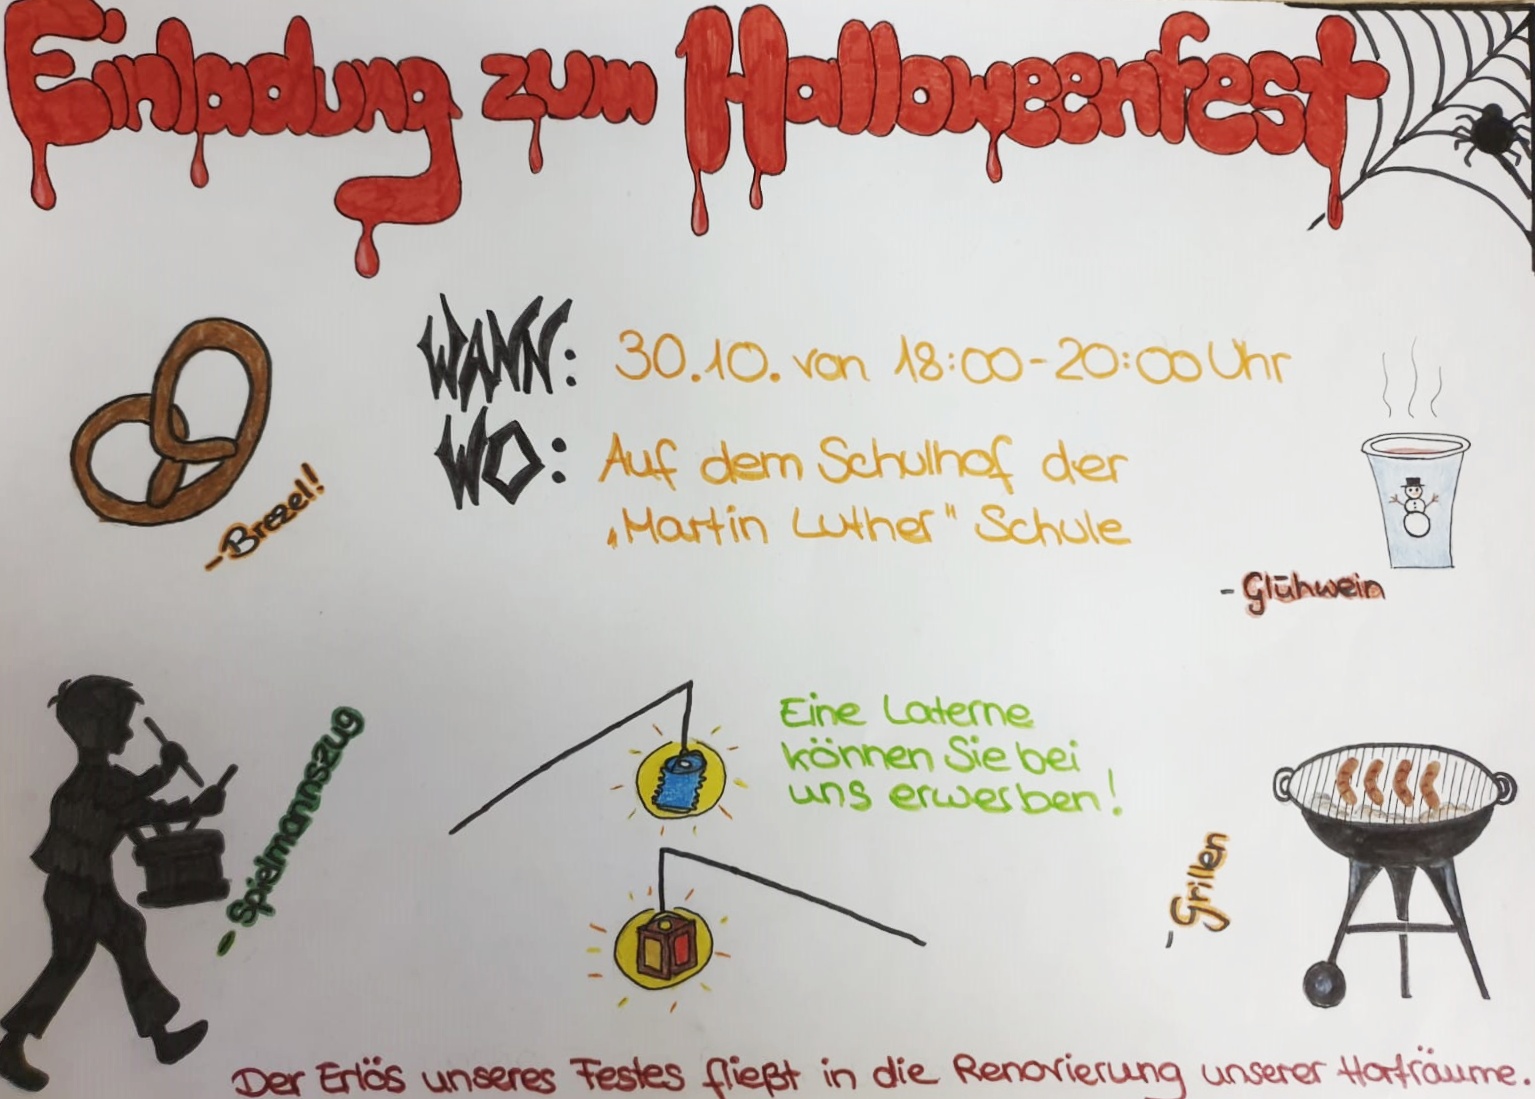 Einladung zum Halloweenfest
WANN: 30.10. von 18:00-20:00 Uhr
WO: Auf dem Schulhof der
„Martin Luther" Schule
-Brezel!
- Glühwein
- Spielmannszug
Eine Laterne
können Sie bei
uns erwerben!
- Grillen
Der Erlös unseres Festes fließt in die Renovierung unserer Horträume.